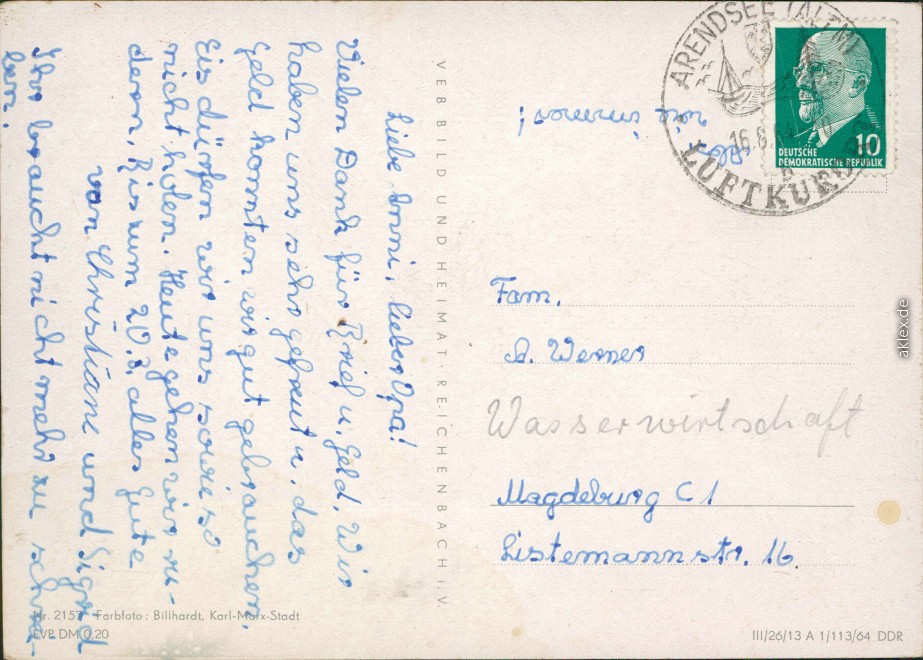 Liebe Omi, lieber Opa!
Vielen Dank für Brief u. Geld. Wir
haben uns sehr gefreut u. das
Geld konnten wir gut gebrauchen.
Eis dürfen wir uns sowieso
nicht holen. Heute gehen wir
dern. Bis zum 20.8. alles Gute
von Christiane und Sigrid
Ihr braucht nicht mehr zu schrei-
ben.
VEB BILD UND HEIMAT · REICHENBACH i. V.
Nr. 2157 Farbfoto: Billhardt, Karl-Marx-Stadt
EVP DM 0,20
ARENDSEE (ALTM)
16.8.64
LUFTKURORT
10
DEUTSCHE
DEMOKRATISCHE REPUBLIK
Fam.
A. Werner
Wasserwirtschaft
Magdeburg C1
Listemannstr. 16
III/26/13 A 1/113/64 DDR
aklex.de